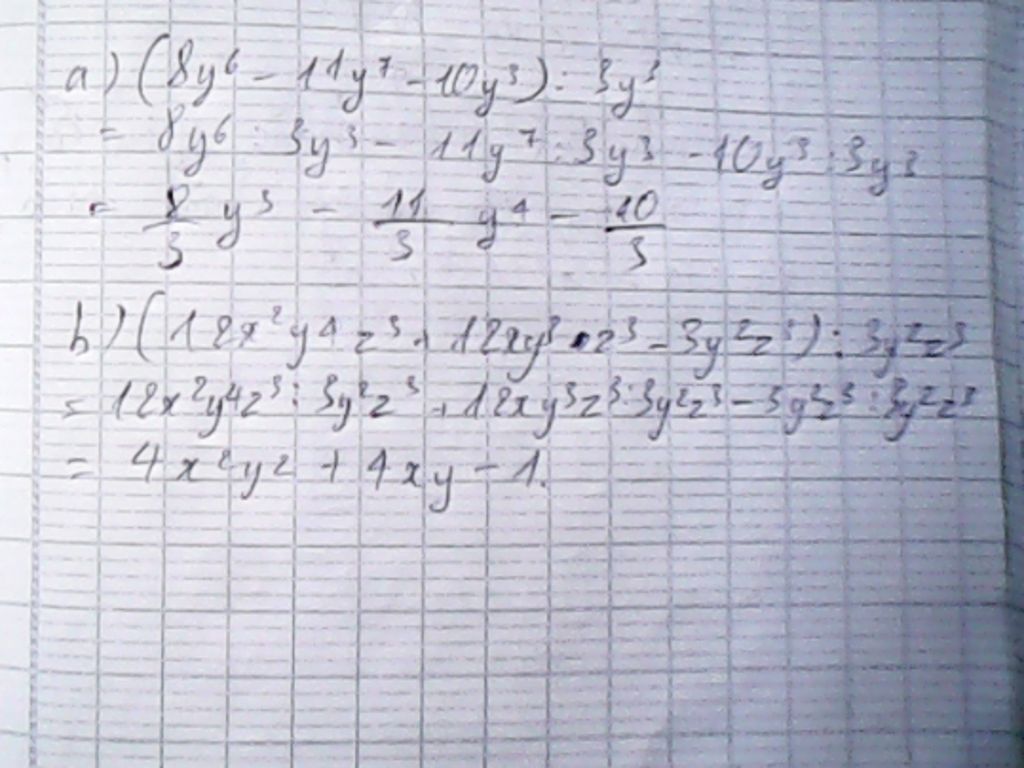 a) (8y⁶ - 11y⁷ - 10y³) : 3y³
= 8y⁶ : 3y³ - 11y⁷ : 3y³ - 10y³ : 3y³
= 8/3 y³ - 11/3 y⁴ - 10/3
b) (12x²y⁴z³ + 12xy³z³ - 3y²z³) : 3y²z³
= 12x²y⁴z³ : 3y²z³ + 12xy³z³ : 3y²z³ - 3y²z³ : 3y²z³
= 4x²y² + 4xy - 1.